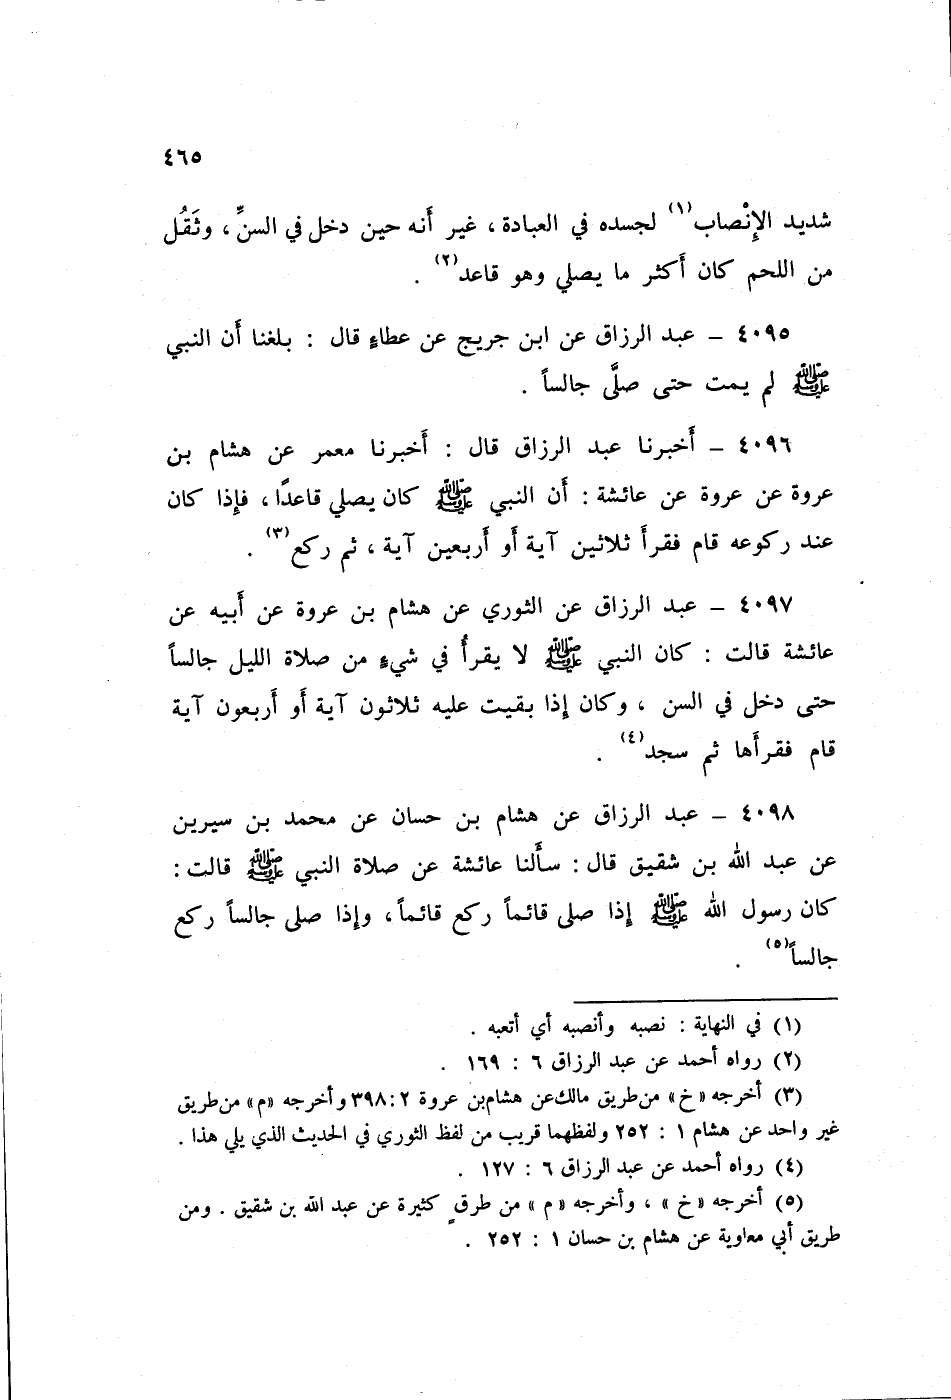 ٤٦٥
شديد الإِنْصاب(١) لجسده في العبادة ، غير أَنه حين دخل في السنِّ ، وثَقُل
من اللحم كان أَكثر ما يصلي وهو قاعد(٢) .
٤٠٩٥ – عبد الرزاق عن ابن جريج عن عطاءٍ قال : بلغنا أَن النبي
ﷺ لم يمت حتى صلَّى جالساً .
٤٠٩٦ – أَخبرنا عبد الرزاق قال : أَخبرنا معمر عن هشام بن
عروة عن عروة عن عائشة : أَن النبي ﷺ كان يصلي قاعدًا ، فإِذا كان
عند ركوعه قام فقرأَ ثلاثين آية أَو أَربعين آية ، ثم ركع(٣) .
٤٠٩٧ – عبد الرزاق عن الثوري عن هشام بن عروة عن أَبيه عن
عائشة قالت : كان النبي ﷺ لا يقرأُ في شيءٍ من صلاة الليل جالساً
حتى دخل في السن ، وكان إِذا بقيت عليه ثلاثون آية أَو أَربعون آية
قام فقرأَها ثم سجد(٤) .
٤٠٩٨ – عبد الرزاق عن هشام بن حسان عن محمد بن سيرين
عن عبد الله بن شقيق قال : سأَلنا عائشة عن صلاة النبي ﷺ قالت :
كان رسول الله ﷺ إِذا صلى قائماً ركع قائماً ، وإِذا صلى جالساً ركع
جالساً(٥) .
(١) في النهاية : نصبه وأنصبه أي أتعبه .
(٢) رواه أحمد عن عبد الرزاق ٦ : ١٦٩ .
(٣) أخرجه «خ» من طريق مالك عن هشام بن عروة ٢ : ٣٩٨ وأخرجه «م» من طريق
غير واحد عن هشام ١ : ٢٥٢ ولفظهما قريب من لفظ الثوري في الحديث الذي يلي هذا .
(٤) رواه أحمد عن عبد الرزاق ٦ : ١٢٧ .
(٥) أخرجه «خ» ، وأخرجه «م» من طرقٍ كثيرة عن عبد الله بن شقيق . ومن
طريق أبي معاوية عن هشام بن حسان ١ : ٢٥٢ .